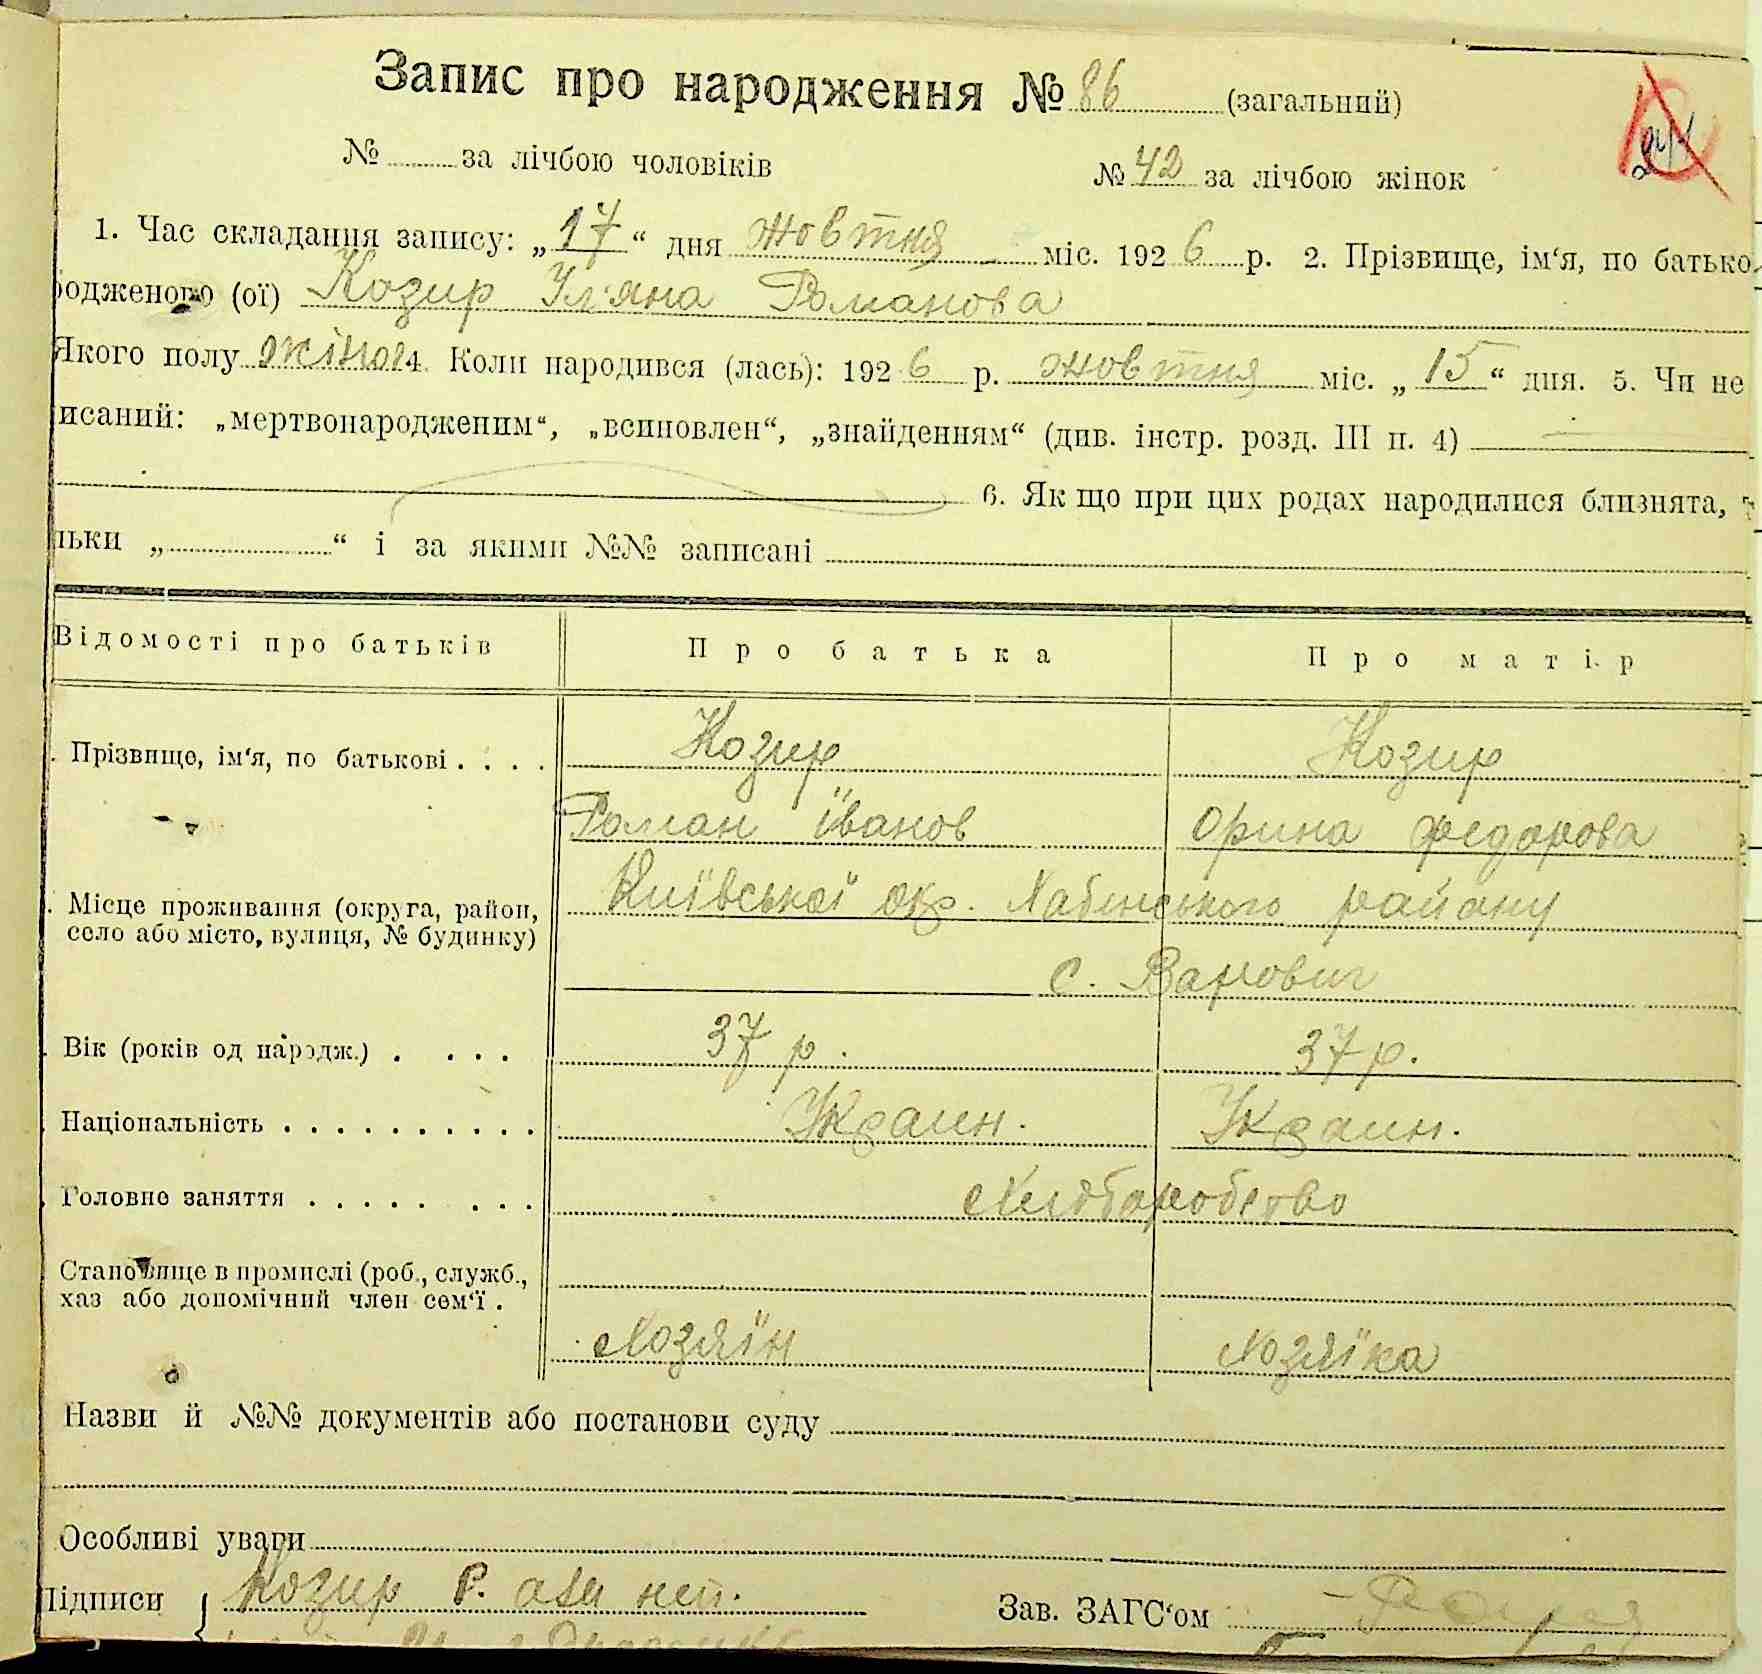 Запис про народження № 86 (загальний)
№ за лічбою чоловіків № 42 за лічбою жінок
1. Час складання запису: „17“ дня жовтня міс. 1926 р. 2. Прізвище, ім‘я, по батько
родженого (ої) Козир Ул'яна Романова
Якого полу жіноч 4. Коли народився (лась): 1926 р. жовтня міс. „15“ дня. 5. Чи не
исаний: „мертвонародженим“, „всиновлен“, „знайденням“ (див. інстр. розд. III п. 4)
6. Як що при цих родах народилися близнята,
льки „ “ і за якими №№ записані
Відомості про батьків Про батька Про матір
Прізвище, ім‘я, по батькові Козир Козир
Роман Іванов Орина Федорова
Місце проживання (округа, район, Київської окр. Хабенського району
село або місто, вулиця, № будинку)
с. Варович
Вік (років од народж.) 37 р. 37 р.
Національність Украин. Украин.
Головне заняття Хліборобство
Становище в промислі (роб., служб.,
хаз або допомічний член сем‘ї.
Хозяїн Хозяїка
Назви й №№ документів або постанови суду
Особливі уваги
Підписи Козир Р. Зав. ЗАГС‘ом